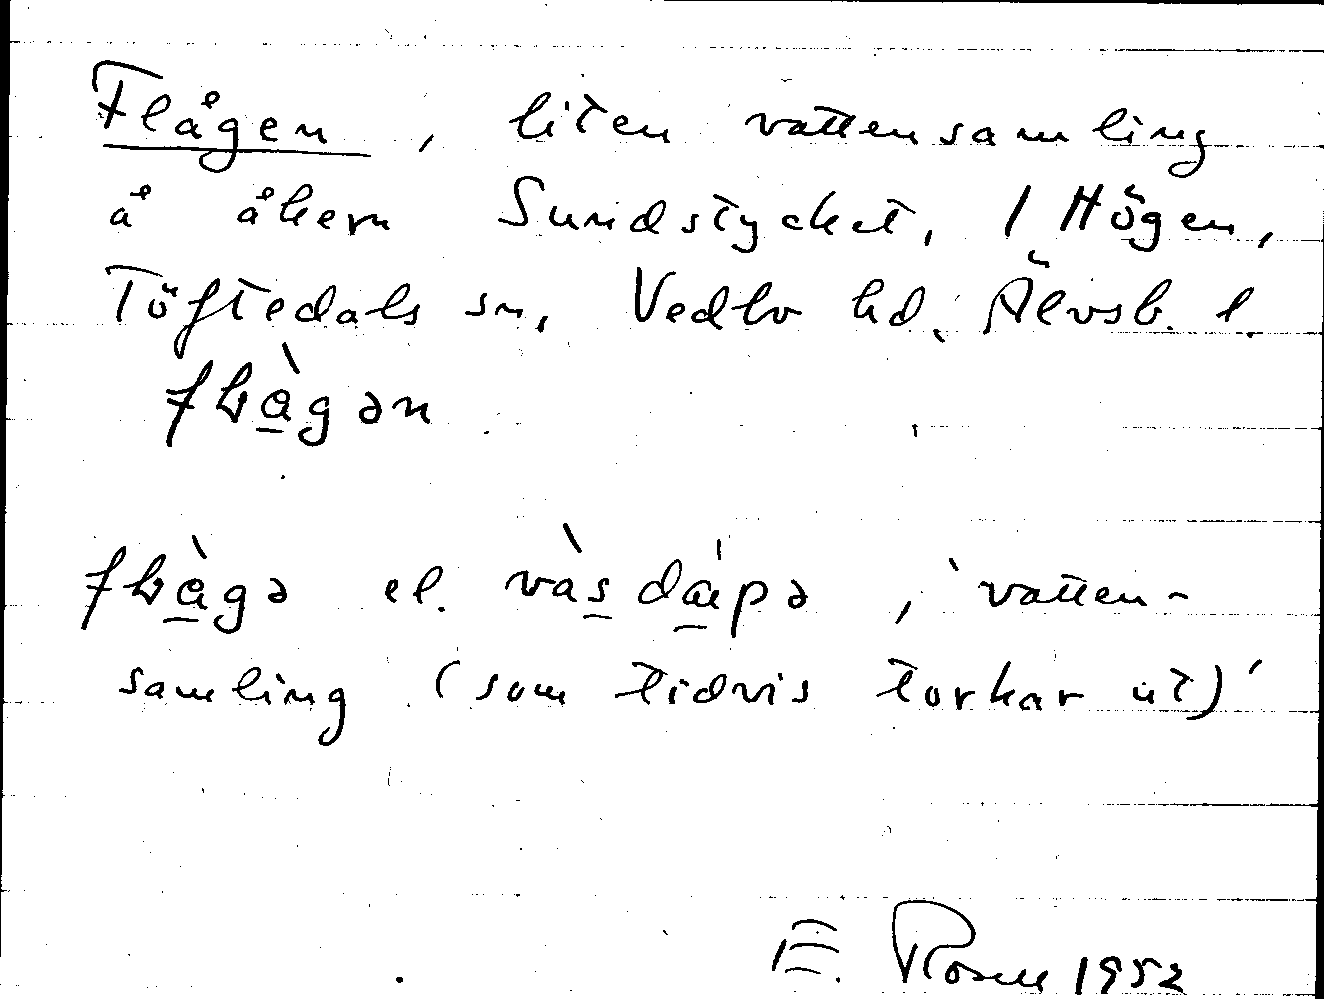 Flågen, liten vattensamling
å åkern Sundstycket, 1 Högen,
Töftedals sn, Vedbo hd, Älvsb. l.
fɫà̲gən
fɫà̲gə el. vàs̲dæ̲̀pə, 'vatten-
samling (som tidvis torkar ut)'
E. Rosell 1952